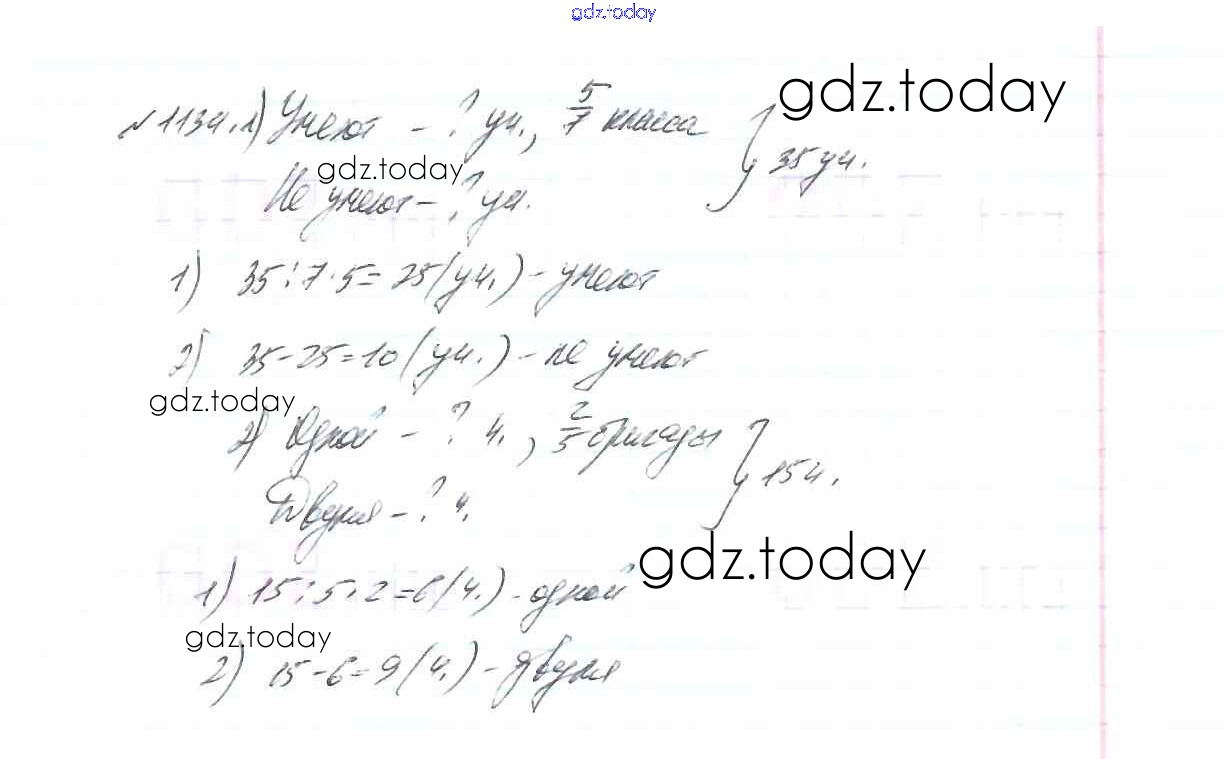 gdz.today
gdz.today
№1134.1) Умеют - ? уч., 5/7 класса } 35 уч.
gdz.today
Не умеют - ? уч.
1) 35:7·5=25(уч.) - умеют
2) 35-25=10(уч.) - не умеют
gdz.today
2) Одной - ? ч., 2/5 бригады } 15ч.
Двумя - ? ч.
gdz.today
1) 15:5·2=6(ч.) - одной
gdz.today
2) 15-6=9(ч.) - двумя